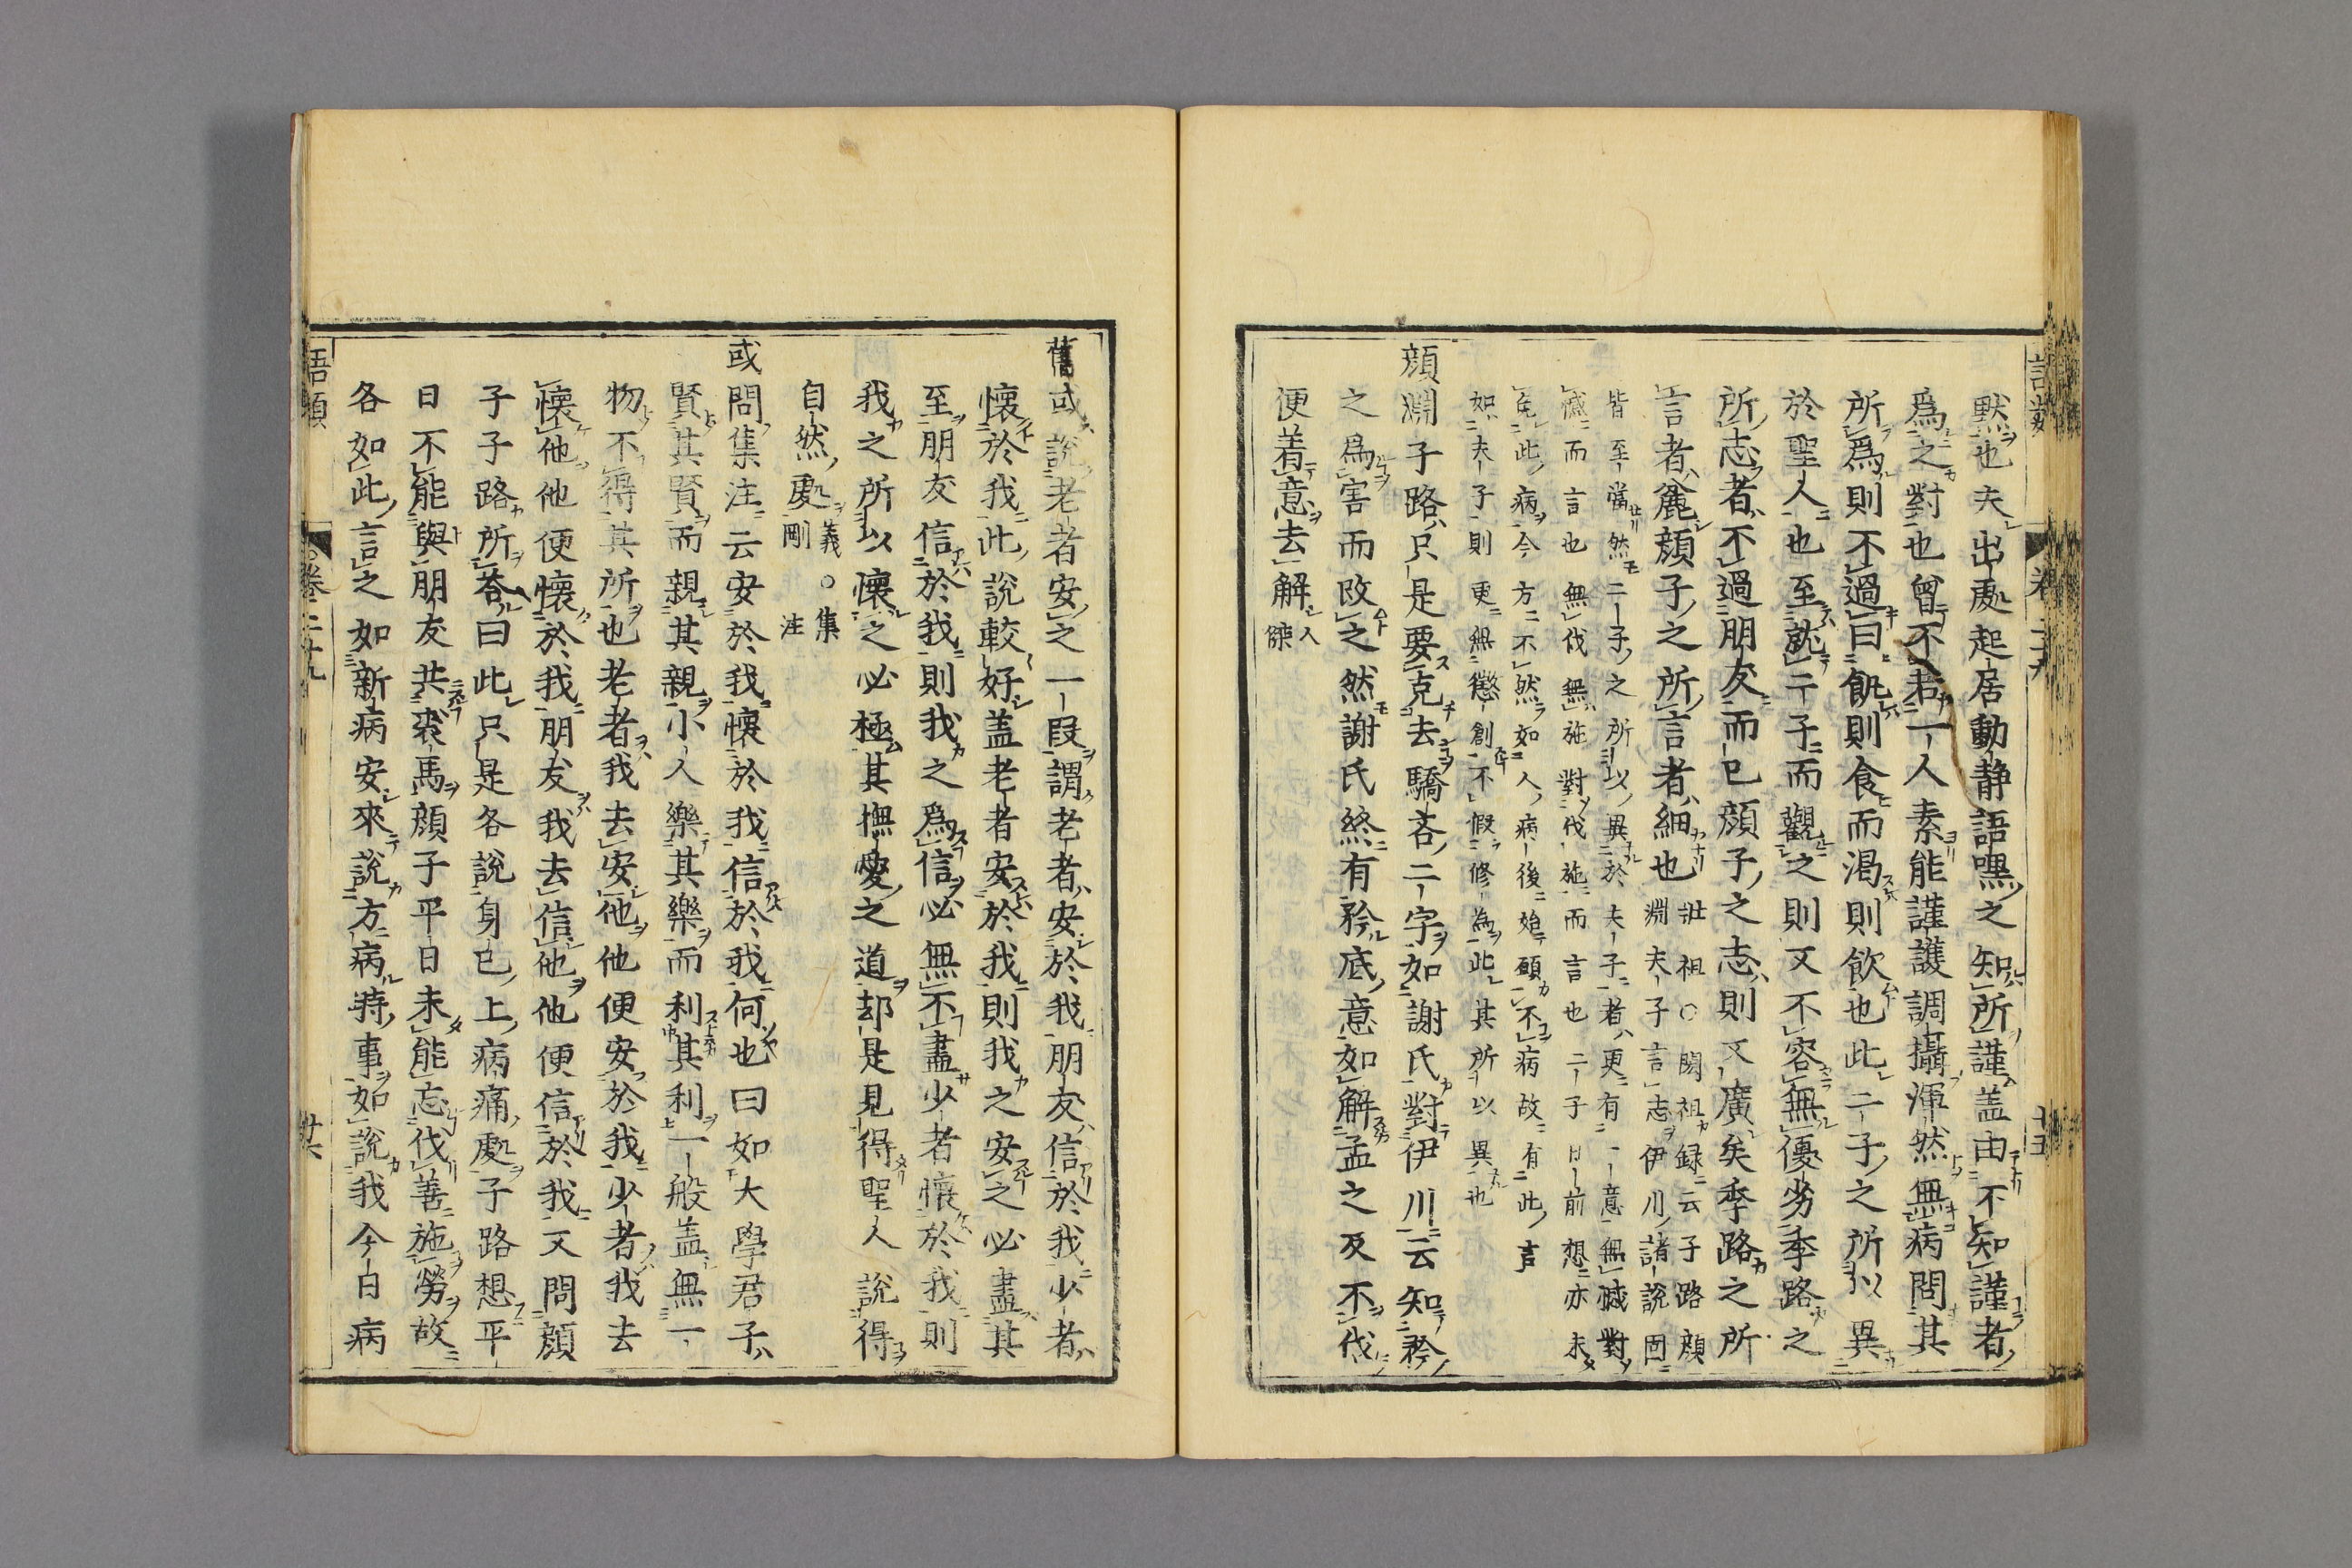 默也夫出處起居動靜語嘿之知所謹盖由不知謹者
爲之對也曾不若一人素能謹護調攝渾然無病問其
所爲則不過曰飢則食而渴則飲也此二子之所以異
於聖人也至就二子而觀之則又不容無優劣季路之
所志者不過朋友而已顔子之志則又廣矣季路之所
言者麄顔子之所言者細也壯祖○閎祖録云子路顔
淵夫子言志伊川諸説固
皆至當然二子之所以異於夫子者更有一意無憾對
憾而言也無伐無施對伐施而言也二子日前想亦未
免此病今方不然如人病後始願不病故有此言
如夫子則更無懲創不假修為此其所以異也
顔淵子路只是要克去驕吝二字如謝氏對伊川云知矜
之爲害而改之然謝氏終有矜底意如解孟之反不伐
便着意去解人傑
舊或説老者安之一段謂老者安於我朋友信於我少者
懷於我此説較好盖老者安於我則我之安之必盡其
至朋友信於我則我之爲信必無不盡少者懷於我則
我之所以懷之必極其撫愛之道却是見得聖人説得
自然處義剛○集注
或問集注云安於我懷於我信於我何也曰如大學君子
賢其賢而親其親小人樂其樂而利其利一般盖無一
物不得其所也老者我去安他他便安於我少者我去
懷他他便懷於我朋友我去信他他便信於我又問顔
子子路所荅曰此只是各説身己上病痛處子路想平
日不能與朋友共裘馬顔子平日未能忘伐善施勞故
各如此言之如新病安來説方病時事如説我今日病
語類
卷二十九
廿六